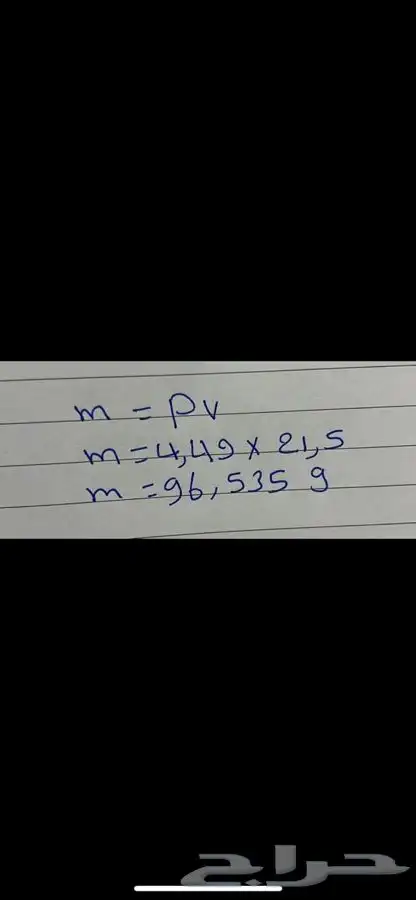 m = ρv
m = 4,49 × 21,5
m = 96,535 g
حراج